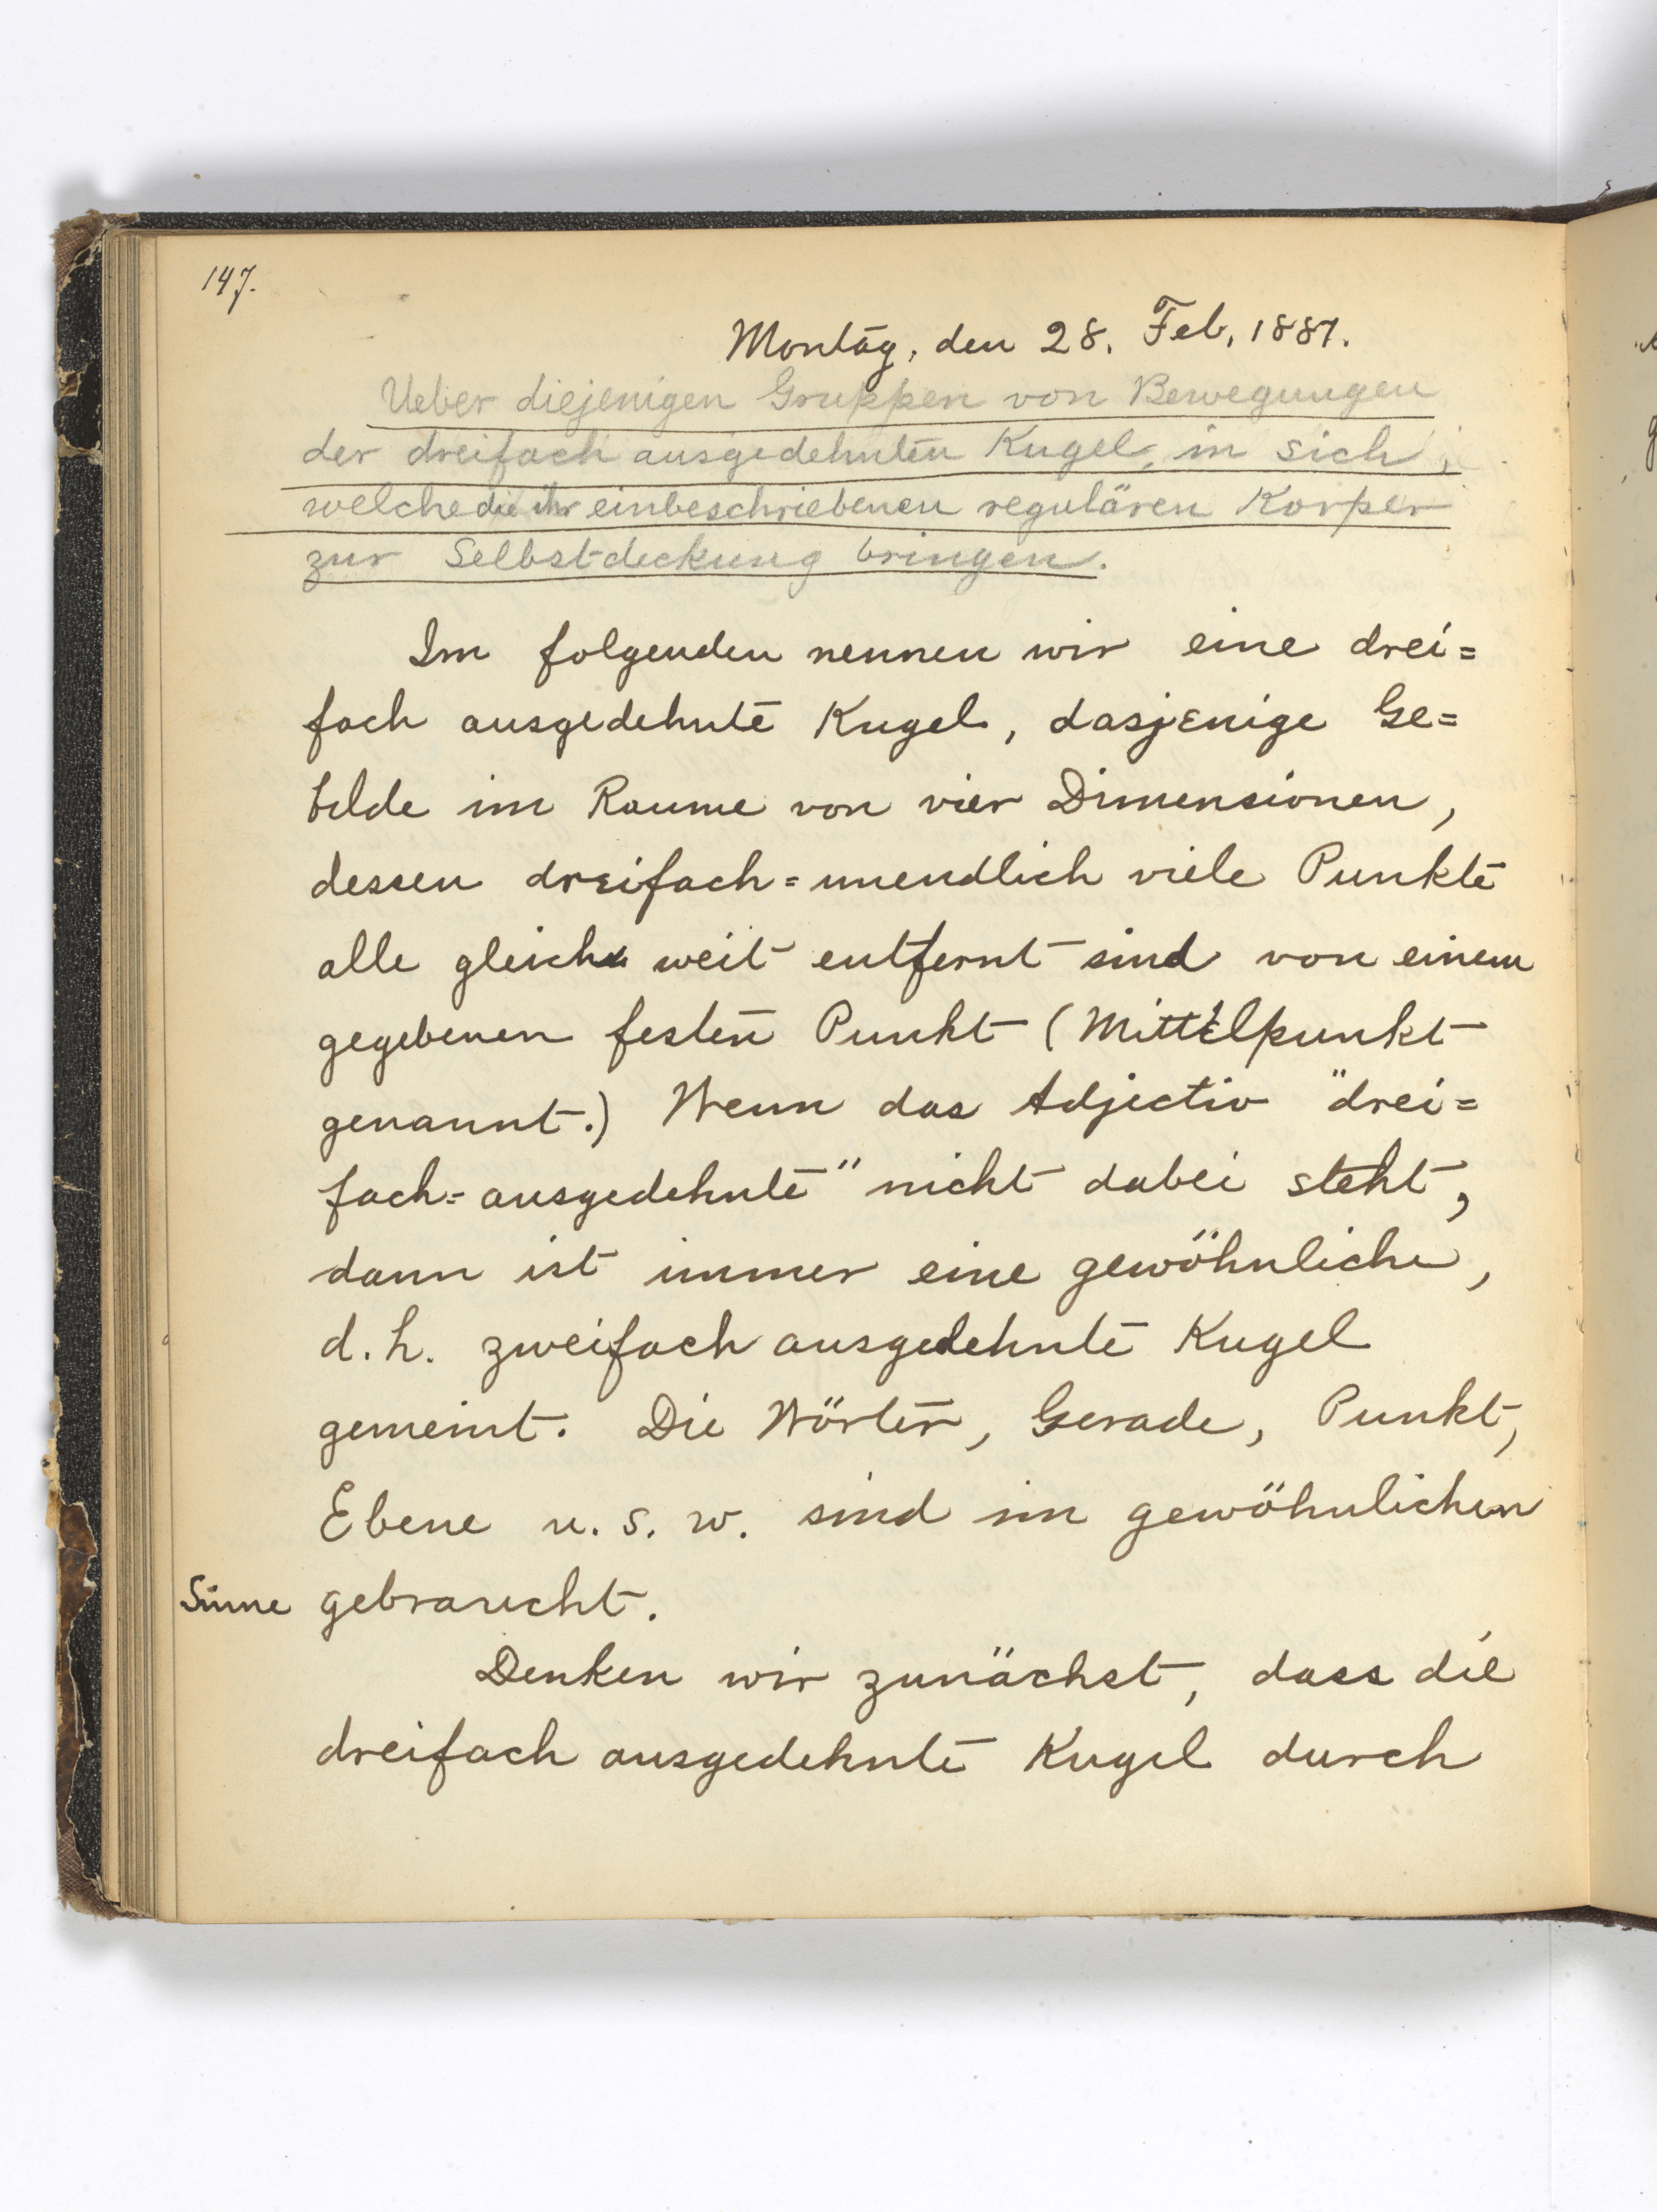 147.
Montag, den 28. Feb, 1887.
Ueber diejenigen Gruppen von Bewegungen
der dreifach ausgedehnten Kugel, in sich,
welche die ihr einbeschriebenen regulären Korper
zur Selbstdeckung bringen.
Im folgenden nennen wir eine drei=
fach ausgedehnte Kugel, dasjenige Ge=
bilde im Raume von vier Dimensionen,
dessen dreifach=unendlich viele Punkte
alle gleich weit entfernt sind von einem
gegebenen festen Punkt (Mittelpunkt
genannt.) Wenn das Adjectiv "drei=
fach=ausgedehnte" nicht dabei steht,
dann ist immer eine gewöhnliche,
d.h. zweifach ausgedehnte Kugel
gemeint. Die Wörter, Gerade, Punkt,
Ebene u. s. w. sind im gewöhnlichen
Sinne gebraucht.
Denken wir zunächst, dass die
dreifach ausgedehnte Kugel durch